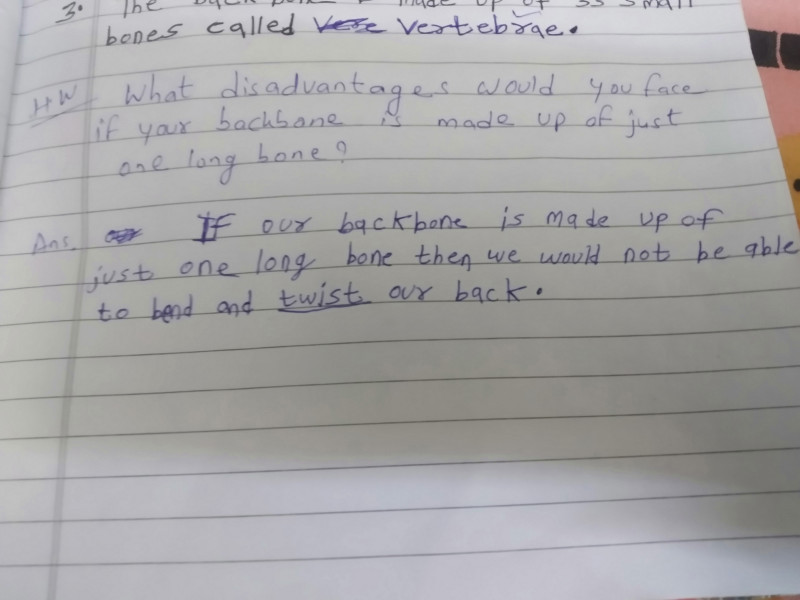 3. The back bone is made up of 33 small
bones called vertebrae.
HW What disadvantages would you face
if your backbone is made up of just
one long bone?
Ans. If our backbone is made up of
just one long bone then we would not be able
to bend and twist our back.